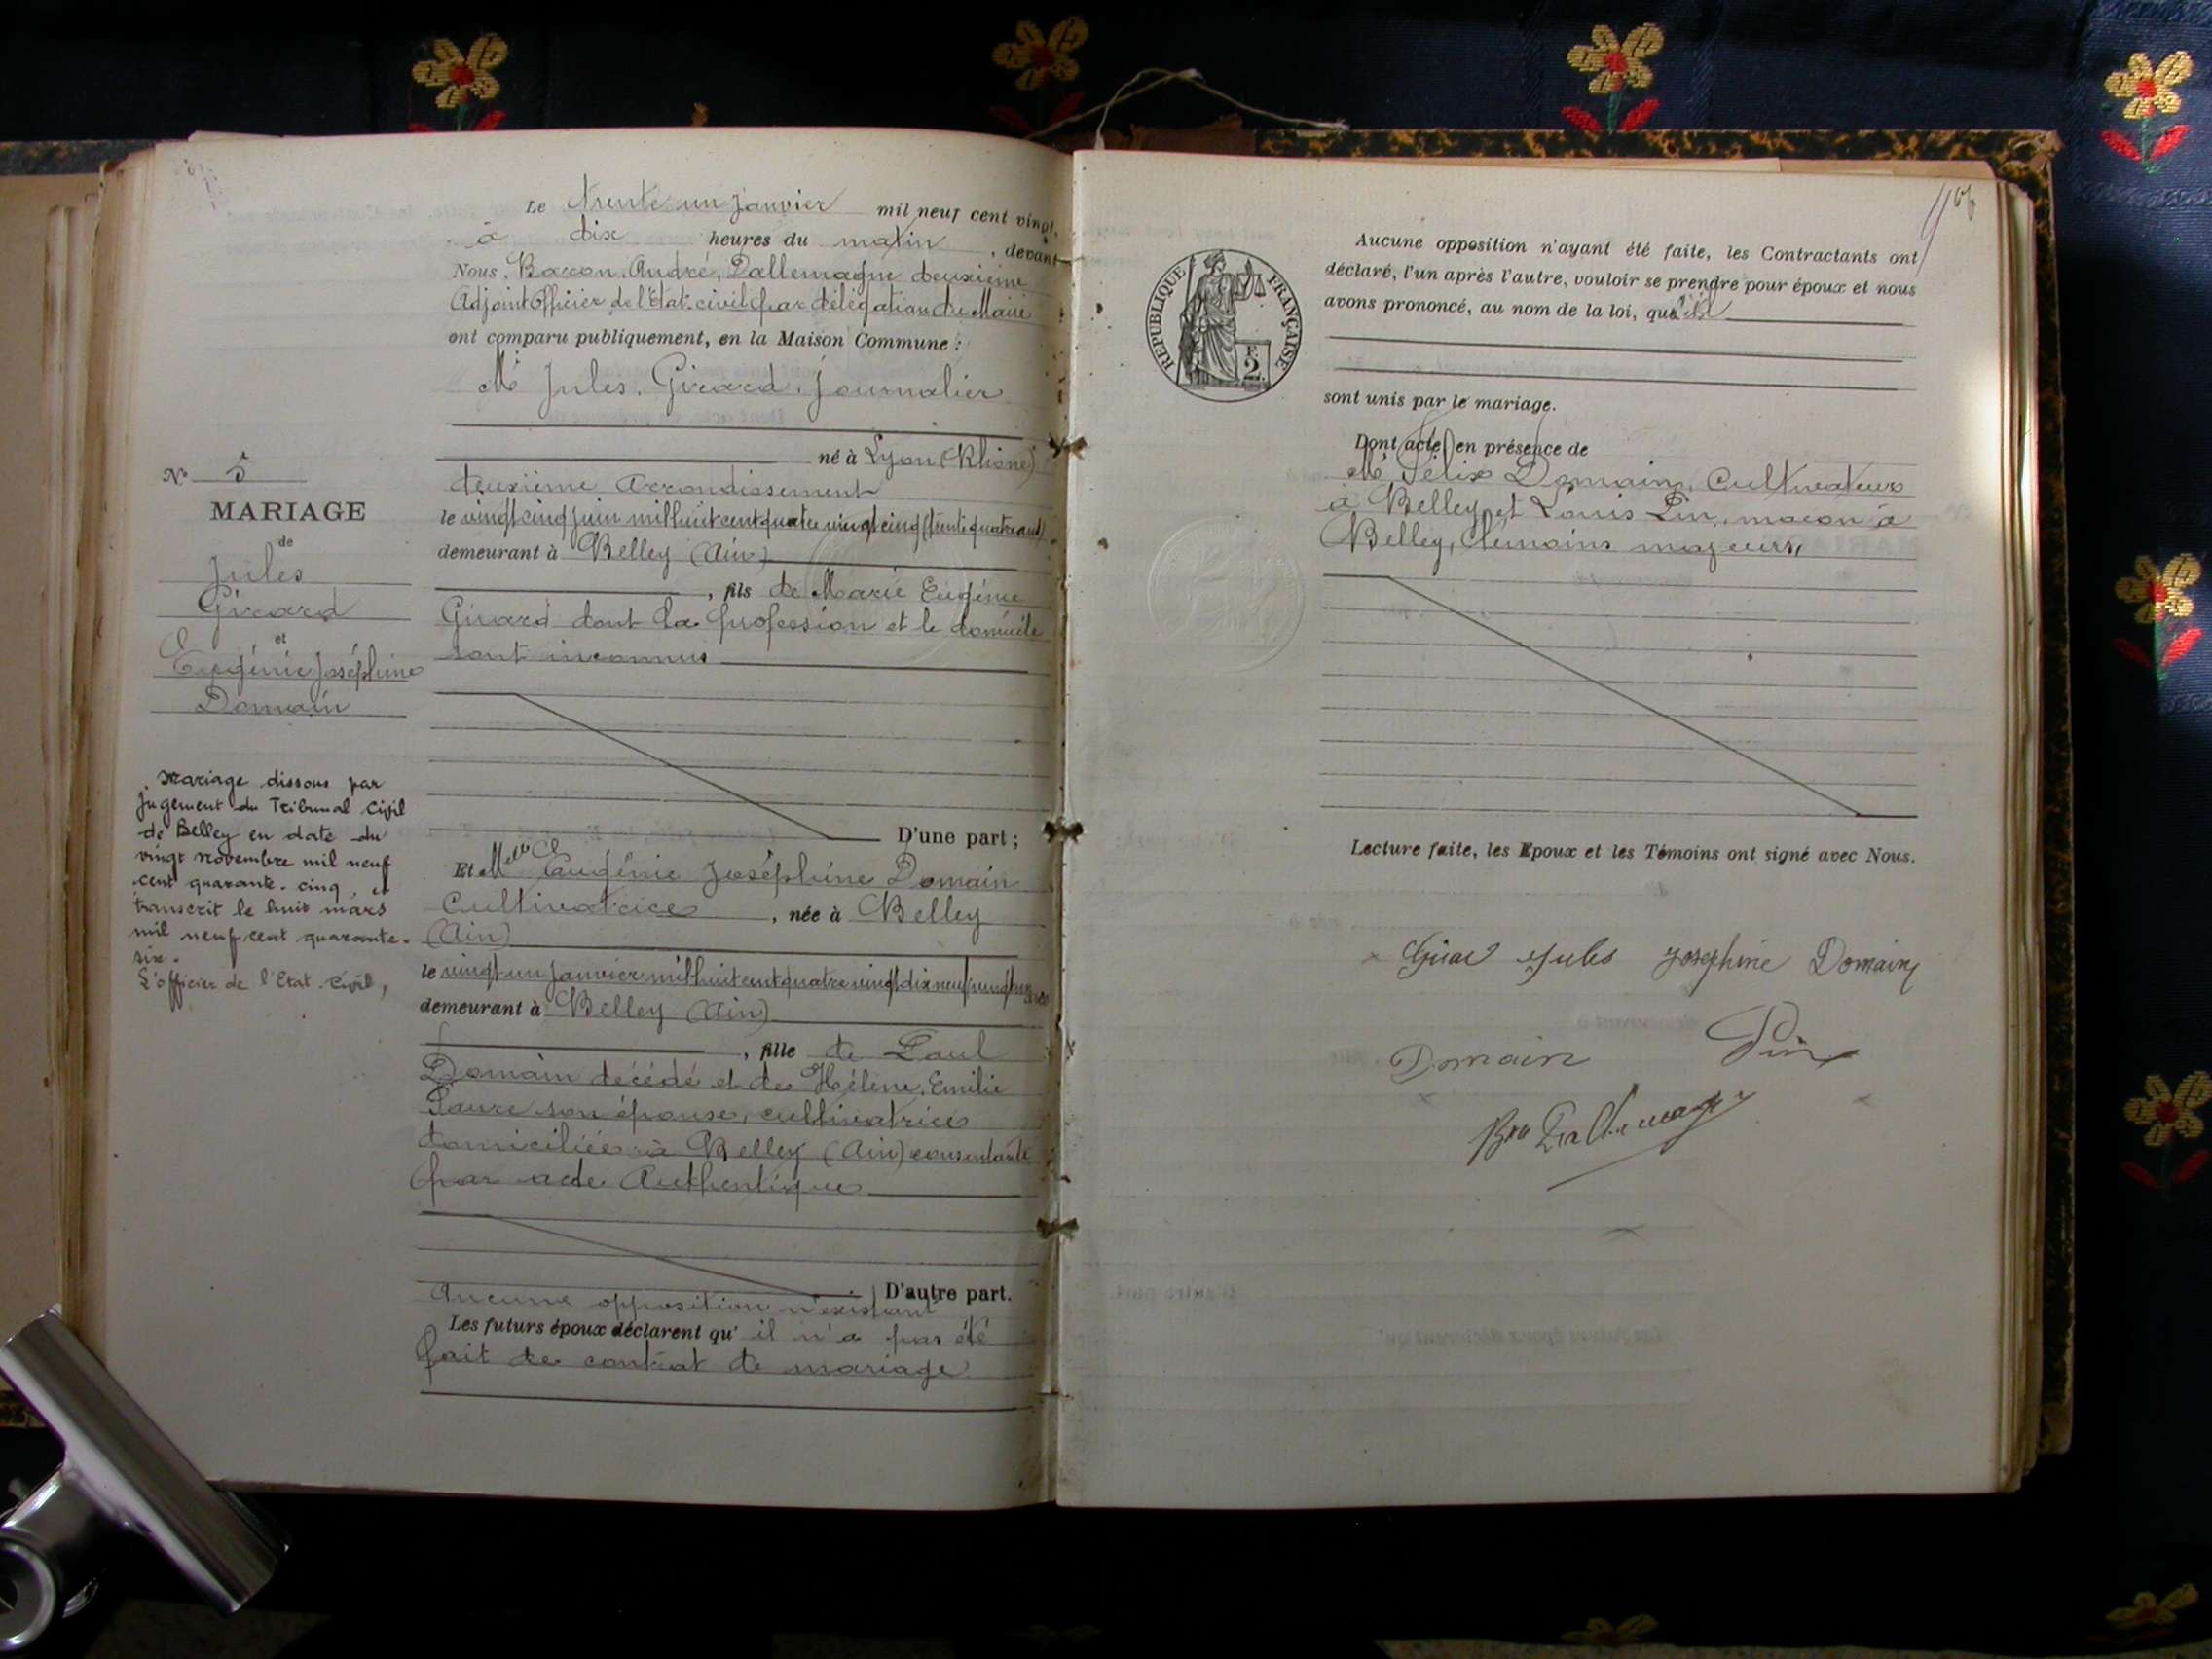 Le trente un janvier mil neuf cent vingt,
à dix heures du matin, devant
Nous, Baron, André, Dallemagne deuxième
Adjoint Officier de l'état civil par délégation du Maire
ont comparu publiquement, en la Maison Commune :
Mr Jules, Girard, journalier
né à Lyon (Rhône)
deuxième Arrondissement
le vingt cinq juin mil huit cent quatre vingt cinq (trente quatre ans)
demeurant à Belley (Ain)
, fils de Marie Eugénie
Girard dont la profession et le domicile
sont inconnus
D'une part ;
Et Melle Eugénie Joséphine Domain
Cultivatrice, née à Belley
(Ain)
le vingt un janvier mil huit cent quatre vingt dix neuf
demeurant à Belley (Ain)
, fille de Paul
Domain décédé et de Hélène, Emilie
son épouse, cultivatrice
domiciliée à Belley (Ain) consentante
par acte Authentique
D'autre part.
Aucune opposition n'existant
Les futurs époux déclarent qu'il n'a pas été
fait de contrat de mariage
N° 5
MARIAGE
de
Jules
Girard
et
Eugénie Joséphine
Domain
Mariage dissous par
jugement du Tribunal Civil
de Belley en date du
vingt novembre mil neuf
cent quarante-cinq, et
transcrit le huit mars
mil neuf cent quarante-
six.
L'officier de l'Etat-Civil,
REPUBLIQUE FRANÇAISE
F.
2
Aucune opposition n'ayant été faite, les Contractants ont
déclaré, l'un après l'autre, vouloir se prendre pour époux et nous
avons prononcé, au nom de la loi, qu'ils
sont unis par le mariage.
Dont acte en présence de
Mr Félix Domain, Cultivateur
à Belley et Louis Pin, maçon à
Belley, témoins majeurs,
Lecture faite, les Epoux et les Témoins ont signé avec Nous.
Girard Jules Josephine Domain
Domain Pin
Bon Dallemagne